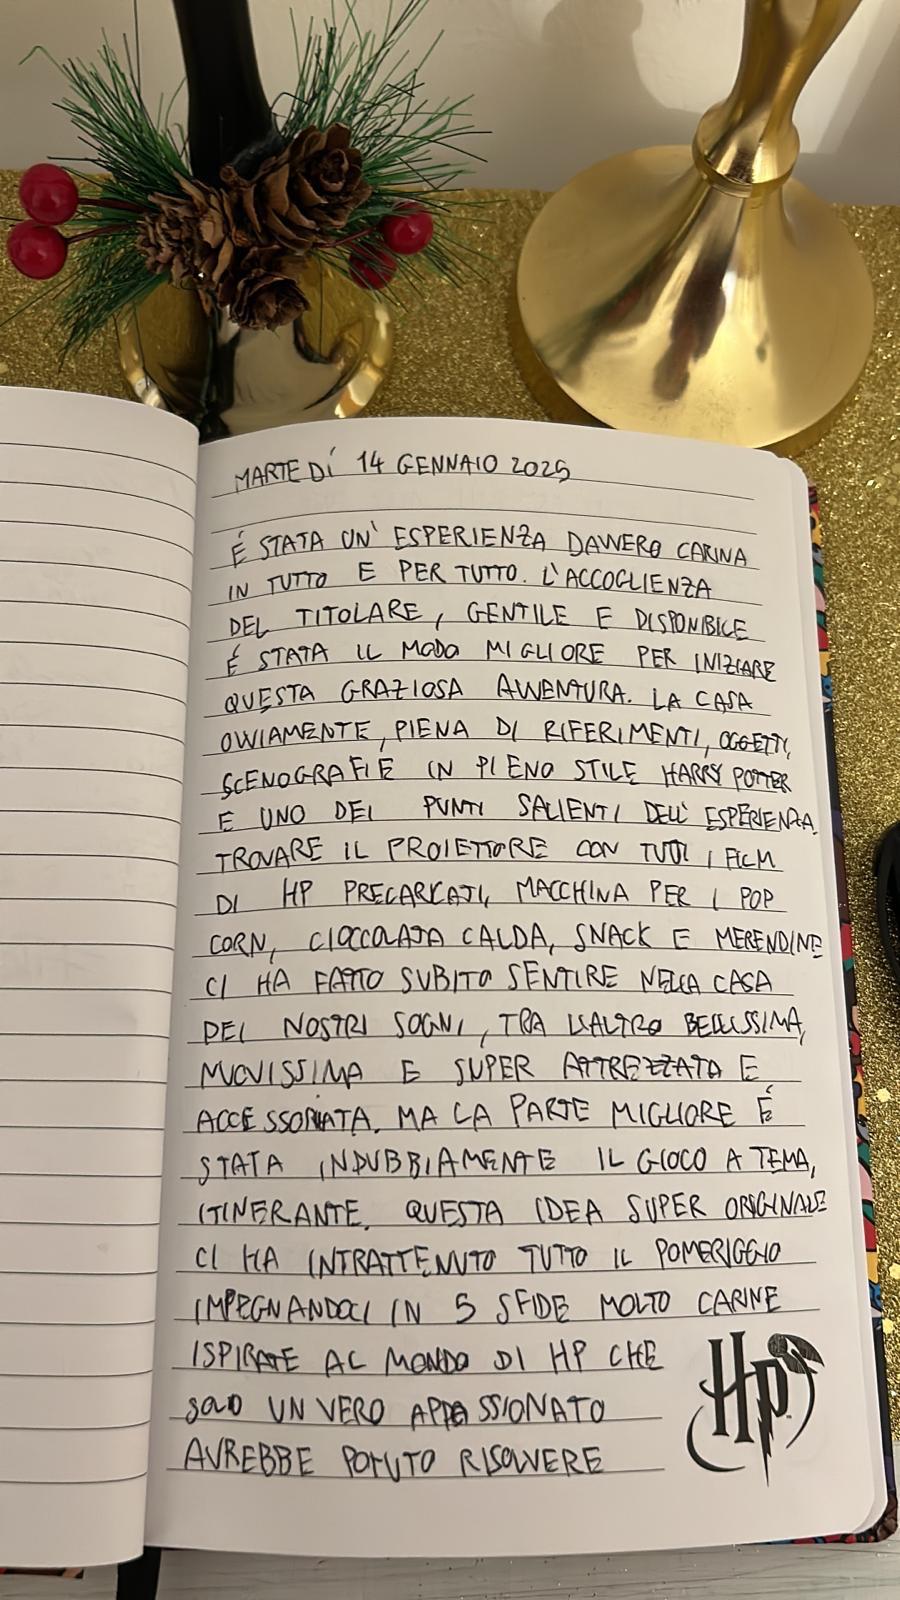 MARTEDÍ 14 GENNAIO 2025
É STATA UN' ESPERIENZA DAVVERO CARINA
IN TUTTO E PER TUTTO. L'ACCOGLIENZA
DEL TITOLARE, GENTILE E DISPONIBILE
É STATA IL MODO MIGLIORE PER INIZIARE
QUESTA GRAZIOSA AVVENTURA. LA CASA
OVVIAMENTE, PIENA DI RIFERIMENTI, OGGETTI,
SCENOGRAFIE IN PIENO STILE HARRY POTTER
E UNO DEI PUNTI SALIENTI DELL' ESPERIENZA.
TROVARE IL PROIETTORE CON TUTTI I FILM
DI HP PRECARICATI, MACCHINA PER I POP
CORN, CIOCCOLATA CALDA, SNACK E MERENDINE
CI HA FATTO SUBITO SENTIRE NELLA CASA
DEI NOSTRI SOGNI, TRA L'ALTRO BELLISSIMA,
NUOVISSIMA E SUPER ATTREZZATA E
ACCESSORIATA. MA LA PARTE MIGLIORE É
STATA INDUBBIAMENTE IL GIOCO A TEMA,
ITINERANTE. QUESTA IDEA SUPER ORIGINALE
CI HA INTRATTENUTO TUTTO IL POMERIGGIO
IMPEGNANDOCI IN 5 SFIDE MOLTO CARINE
ISPIRATE AL MONDO DI HP CHE
SOLO UN VERO APPASSIONATO
AVREBBE POTUTO RISOLVERE
HP